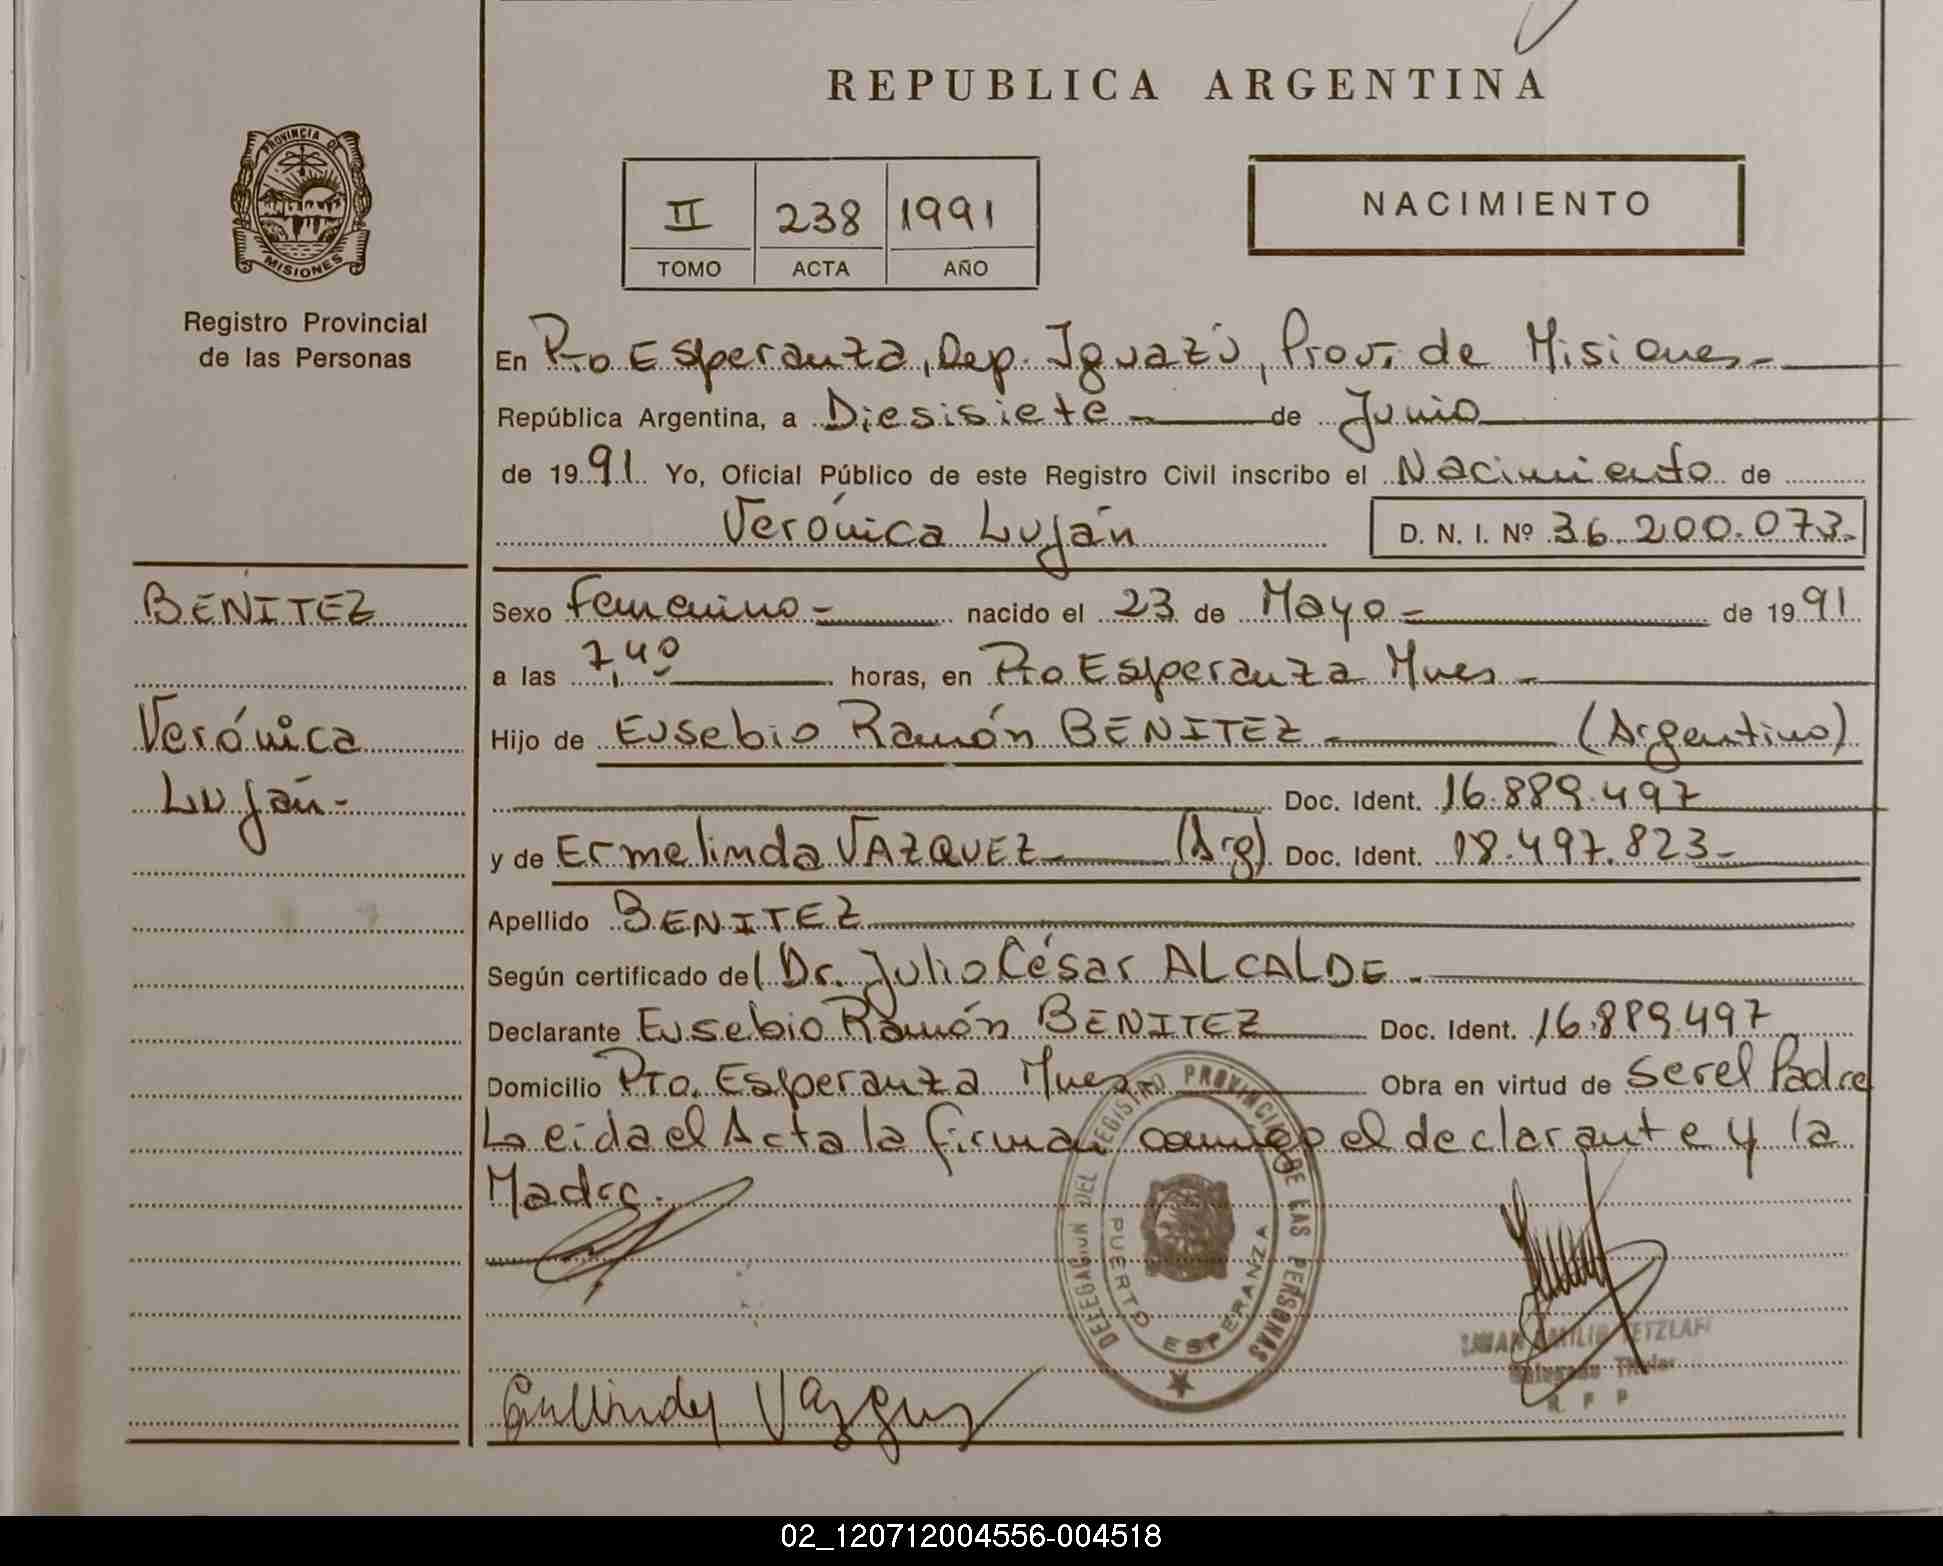 REPUBLICA ARGENTINA
PROVINCIA DE
MISIONES
Registro Provincial
de las Personas
II 238 1991
TOMO ACTA AÑO
NACIMIENTO
En Pto Esperanza, Dep. Iguazú, Prov. de Misiones-
República Argentina, a Diesisiete- de Junio
de 1991 Yo, Oficial Público de este Registro Civil inscribo el Nacimiento de
Verónica Luján D. N. I. Nº 36.200.073-
BENITEZ
Verónica
Luján-
Sexo Femenino- nacido el 23 de Mayo- de 1991
a las 7,40 horas, en Pto Esperanza Mnes-
Hijo de Eusebio Ramón BENITEZ- (Argentino)
Doc. Ident. 16.889.497
y de Ermelinda VAZQUEZ- (Arg) Doc. Ident. 18.497.823-
Apellido BENITEZ
Según certificado del Dr. Julio César ALCALDE-
Declarante Eusebio Ramón BENITEZ Doc. Ident. 16.889.497
Domicilio Pto. Esperanza Mnes- Obra en virtud de ser el Padre
Leida el Acta la firman conmigo el declarante y la
Madre.
DELEGACION DEL REGISTRO PROVINCIAL DE LAS PERSONAS
PUERTO ESPERANZA
EMILIO
Delegado Titular
R P P
Vazquez
02_120712004556-004518